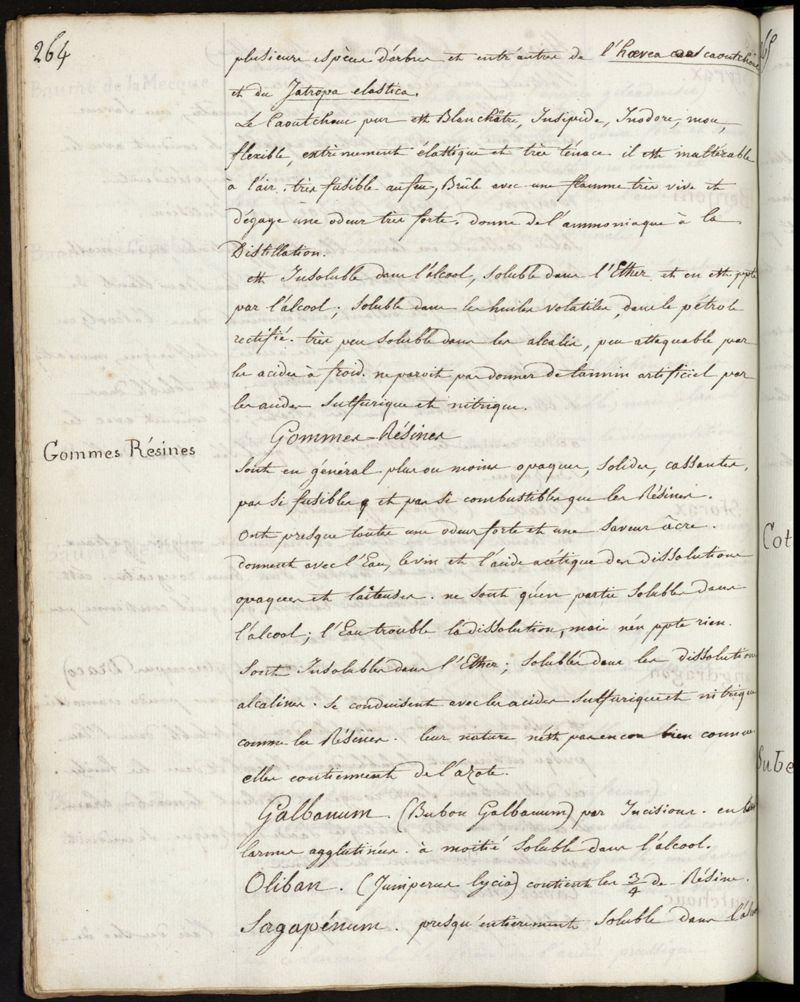 264
plusieurs espèces d'arbres et entr'autres de l'hœvea caoutchouc
et du Jatropa elastica.
Le Caoutchouc pur est Blanchâtre, Insipide, Inodore, mou,
flexible, extrêmement élastique et très ténace. il est inaltérable
à l'air, très fusible au feu, Brûle avec une flamme très vive et
dégage une odeur très forte. donne de l'ammoniaque à la
Distillation.
est Insoluble dans l'alcool, soluble dans l'Ether et en est ppté
par l'alcool; soluble dans les huiles volatiles, dans le pétrole
rectifié. très peu soluble dans les alcalis, peu attaquable par
les acides à froid. ne paroit pas donner de tannin artificiel par
les acides sulfurique et nitrique.
Gommes-Résines
Gommes Résines
sont en général plus ou moins opaques, solides, cassantes,
pas si fusibles et pas si combustibles que les Résines.
Ont presque toutes une odeur forte et une saveur âcre.
donnent avec l'Eau, le vin et l'acide acétique des dissolutions
opaques et laiteuses. ne sont qu'en partie solubles dans
l'alcool; l'Eau trouble la dissolution, mais n'en ppte rien.
Sont Insolubles dans l'Ether; solubles dans les dissolutions
alcalines. se conduisent avec les acides sulfurique et nitrique
comme les Résines. leur nature n'est pas encore bien connue
elles contiennent de l'azote.
Galbanum (Bubon Galbanum) par Incisions. en
larmes agglutinées. à moitié soluble dans l'alcool.
Oliban. (Juniperus lycia) contient les 3/4 de Résine.
Sagapénum. presqu'entièrement soluble dans
Cot